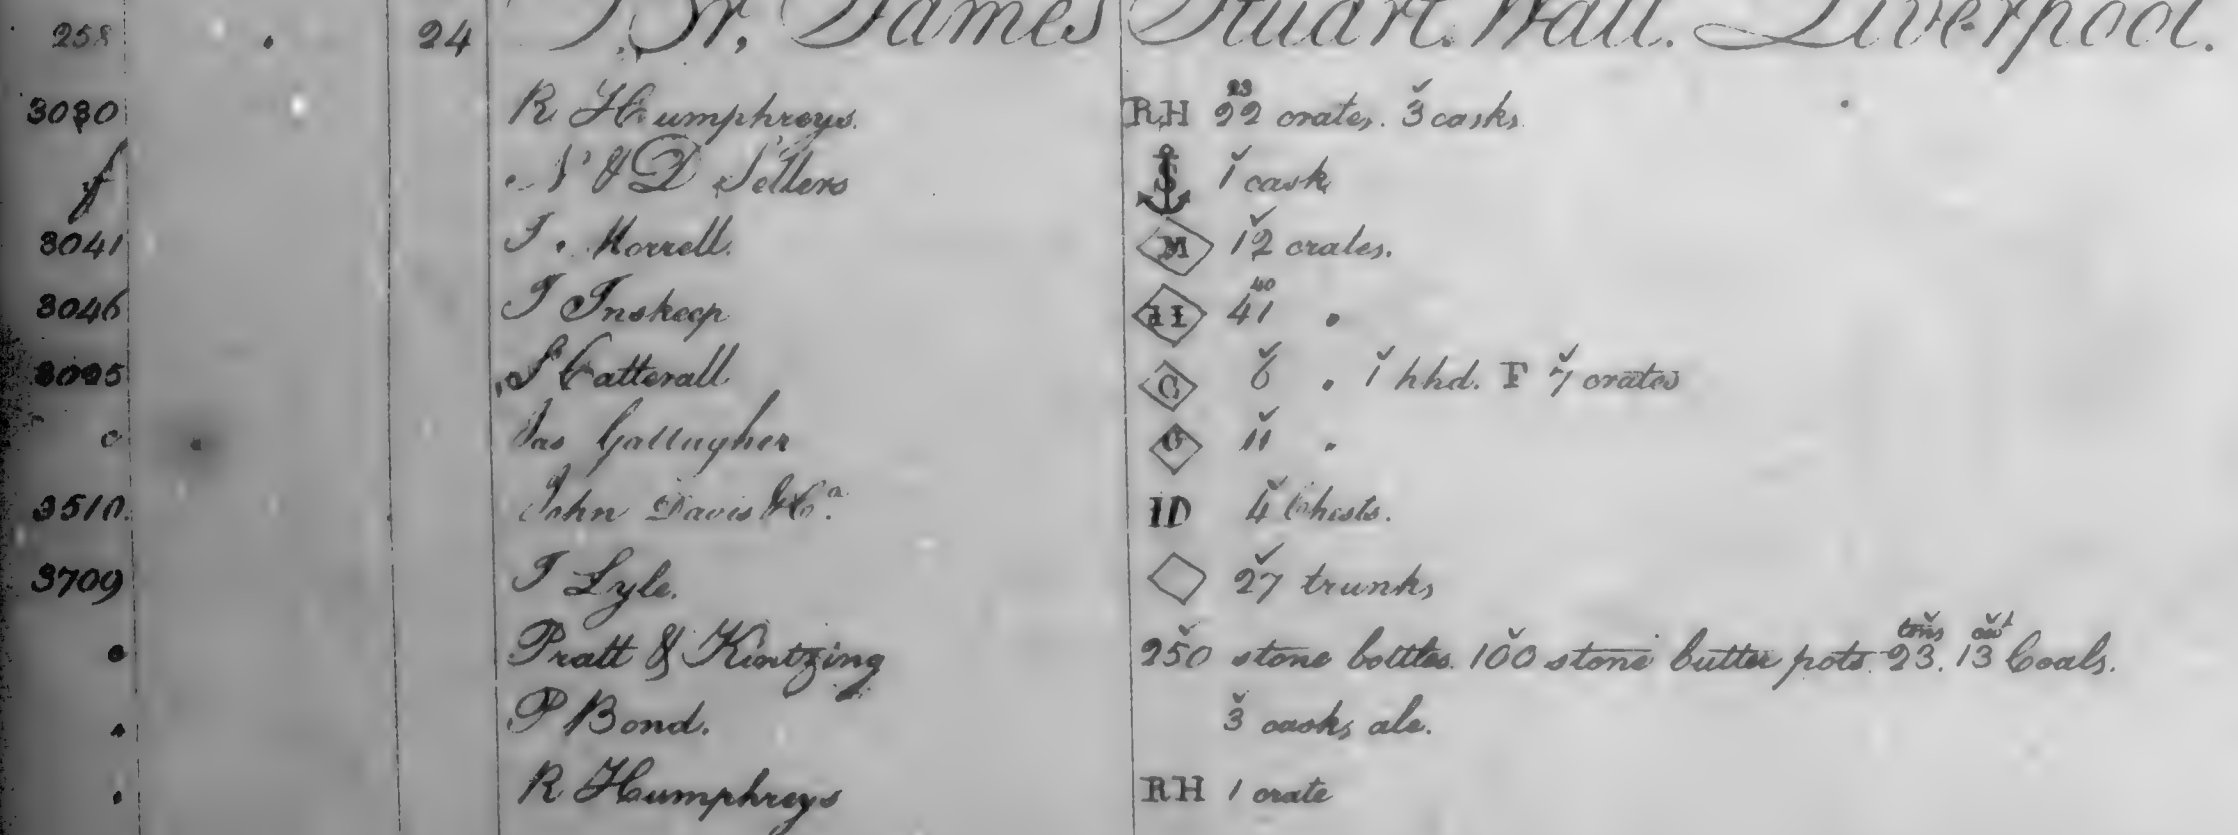 258 24 Br, James Stuart. Wall. Liverpool.
3030 R Humphreys. RH 23 22 crates. 3 casks
N & D Sellers S 1 cask
3041 T. Morrell. M 12 crates.
3046 J Inskeep II 40 41 "
3095 S Catterall C 6 " 1 hhd. F 7 crates
Jas Gallagher G 11 "
3510. John Davis & Co. ID 4 Chests.
3709 J Lyle. 27 trunks
Pratt & Kintzing 250 stone bottles. 100 stone butter pots. tons 23. cwt 13 Coals.
P Bond. 3 casks ale.
R Humphreys RH 1 crate